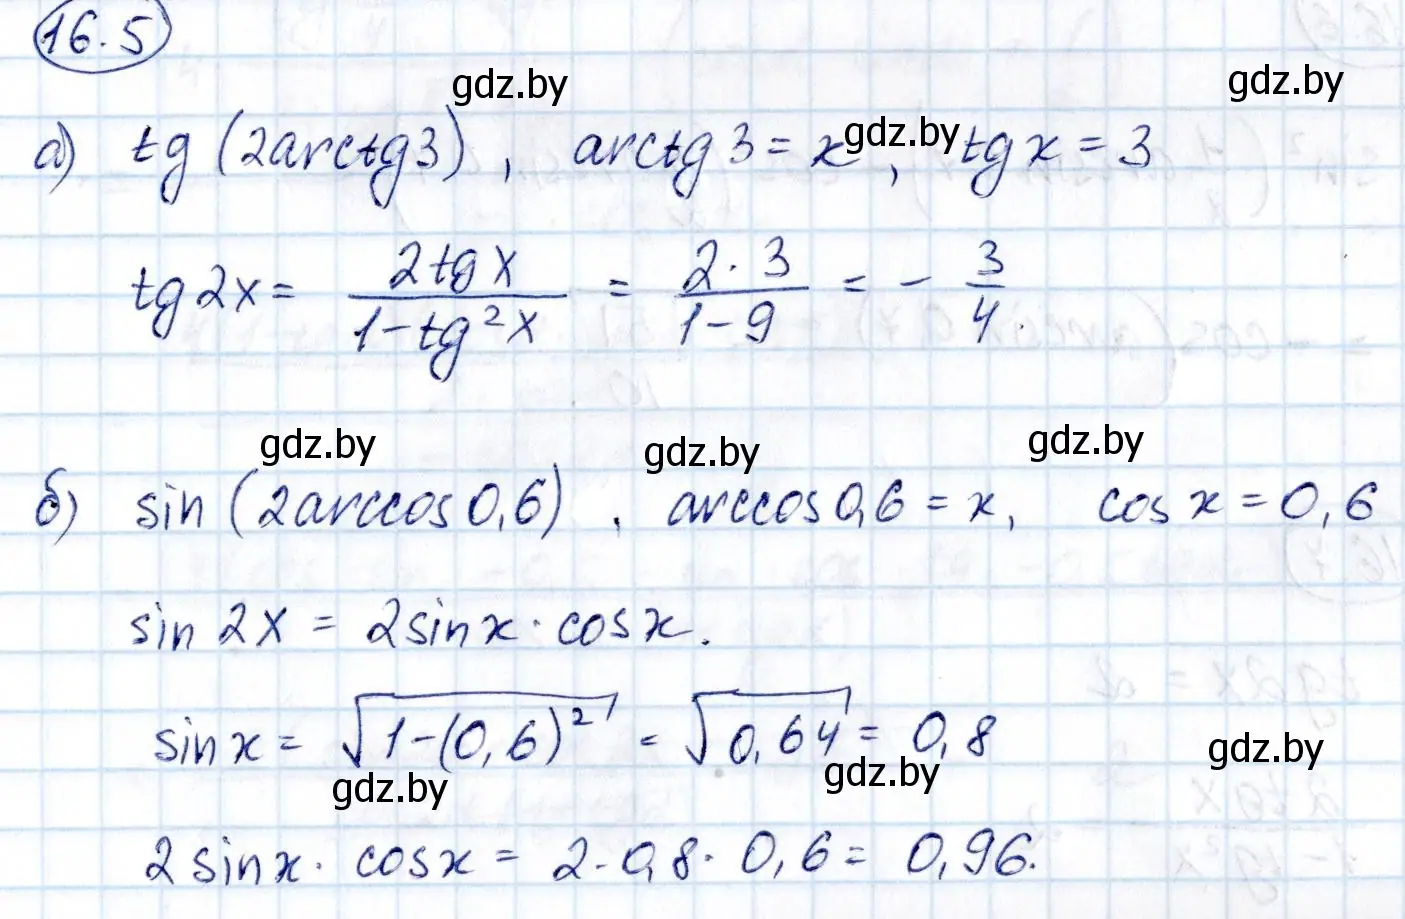 16.5
gdz.by gdz.by
а) tg (2arctg3), arctg 3 = x, tg x = 3
gdz.by
tg 2x = 2tg x / 1 - tg²x = 2 · 3 / 1 - 9 = - 3/4.
gdz.by gdz.by gdz.by
б) sin (2arccos 0,6), arccos 0,6 = x, cos x = 0,6
sin 2x = 2sin x · cos x.
sin x = √1-(0,6)² = √0,64 = 0,8
gdz.by gdz.by gdz.by
2 sin x · cos x = 2 · 0,8 · 0,6 = 0,96.